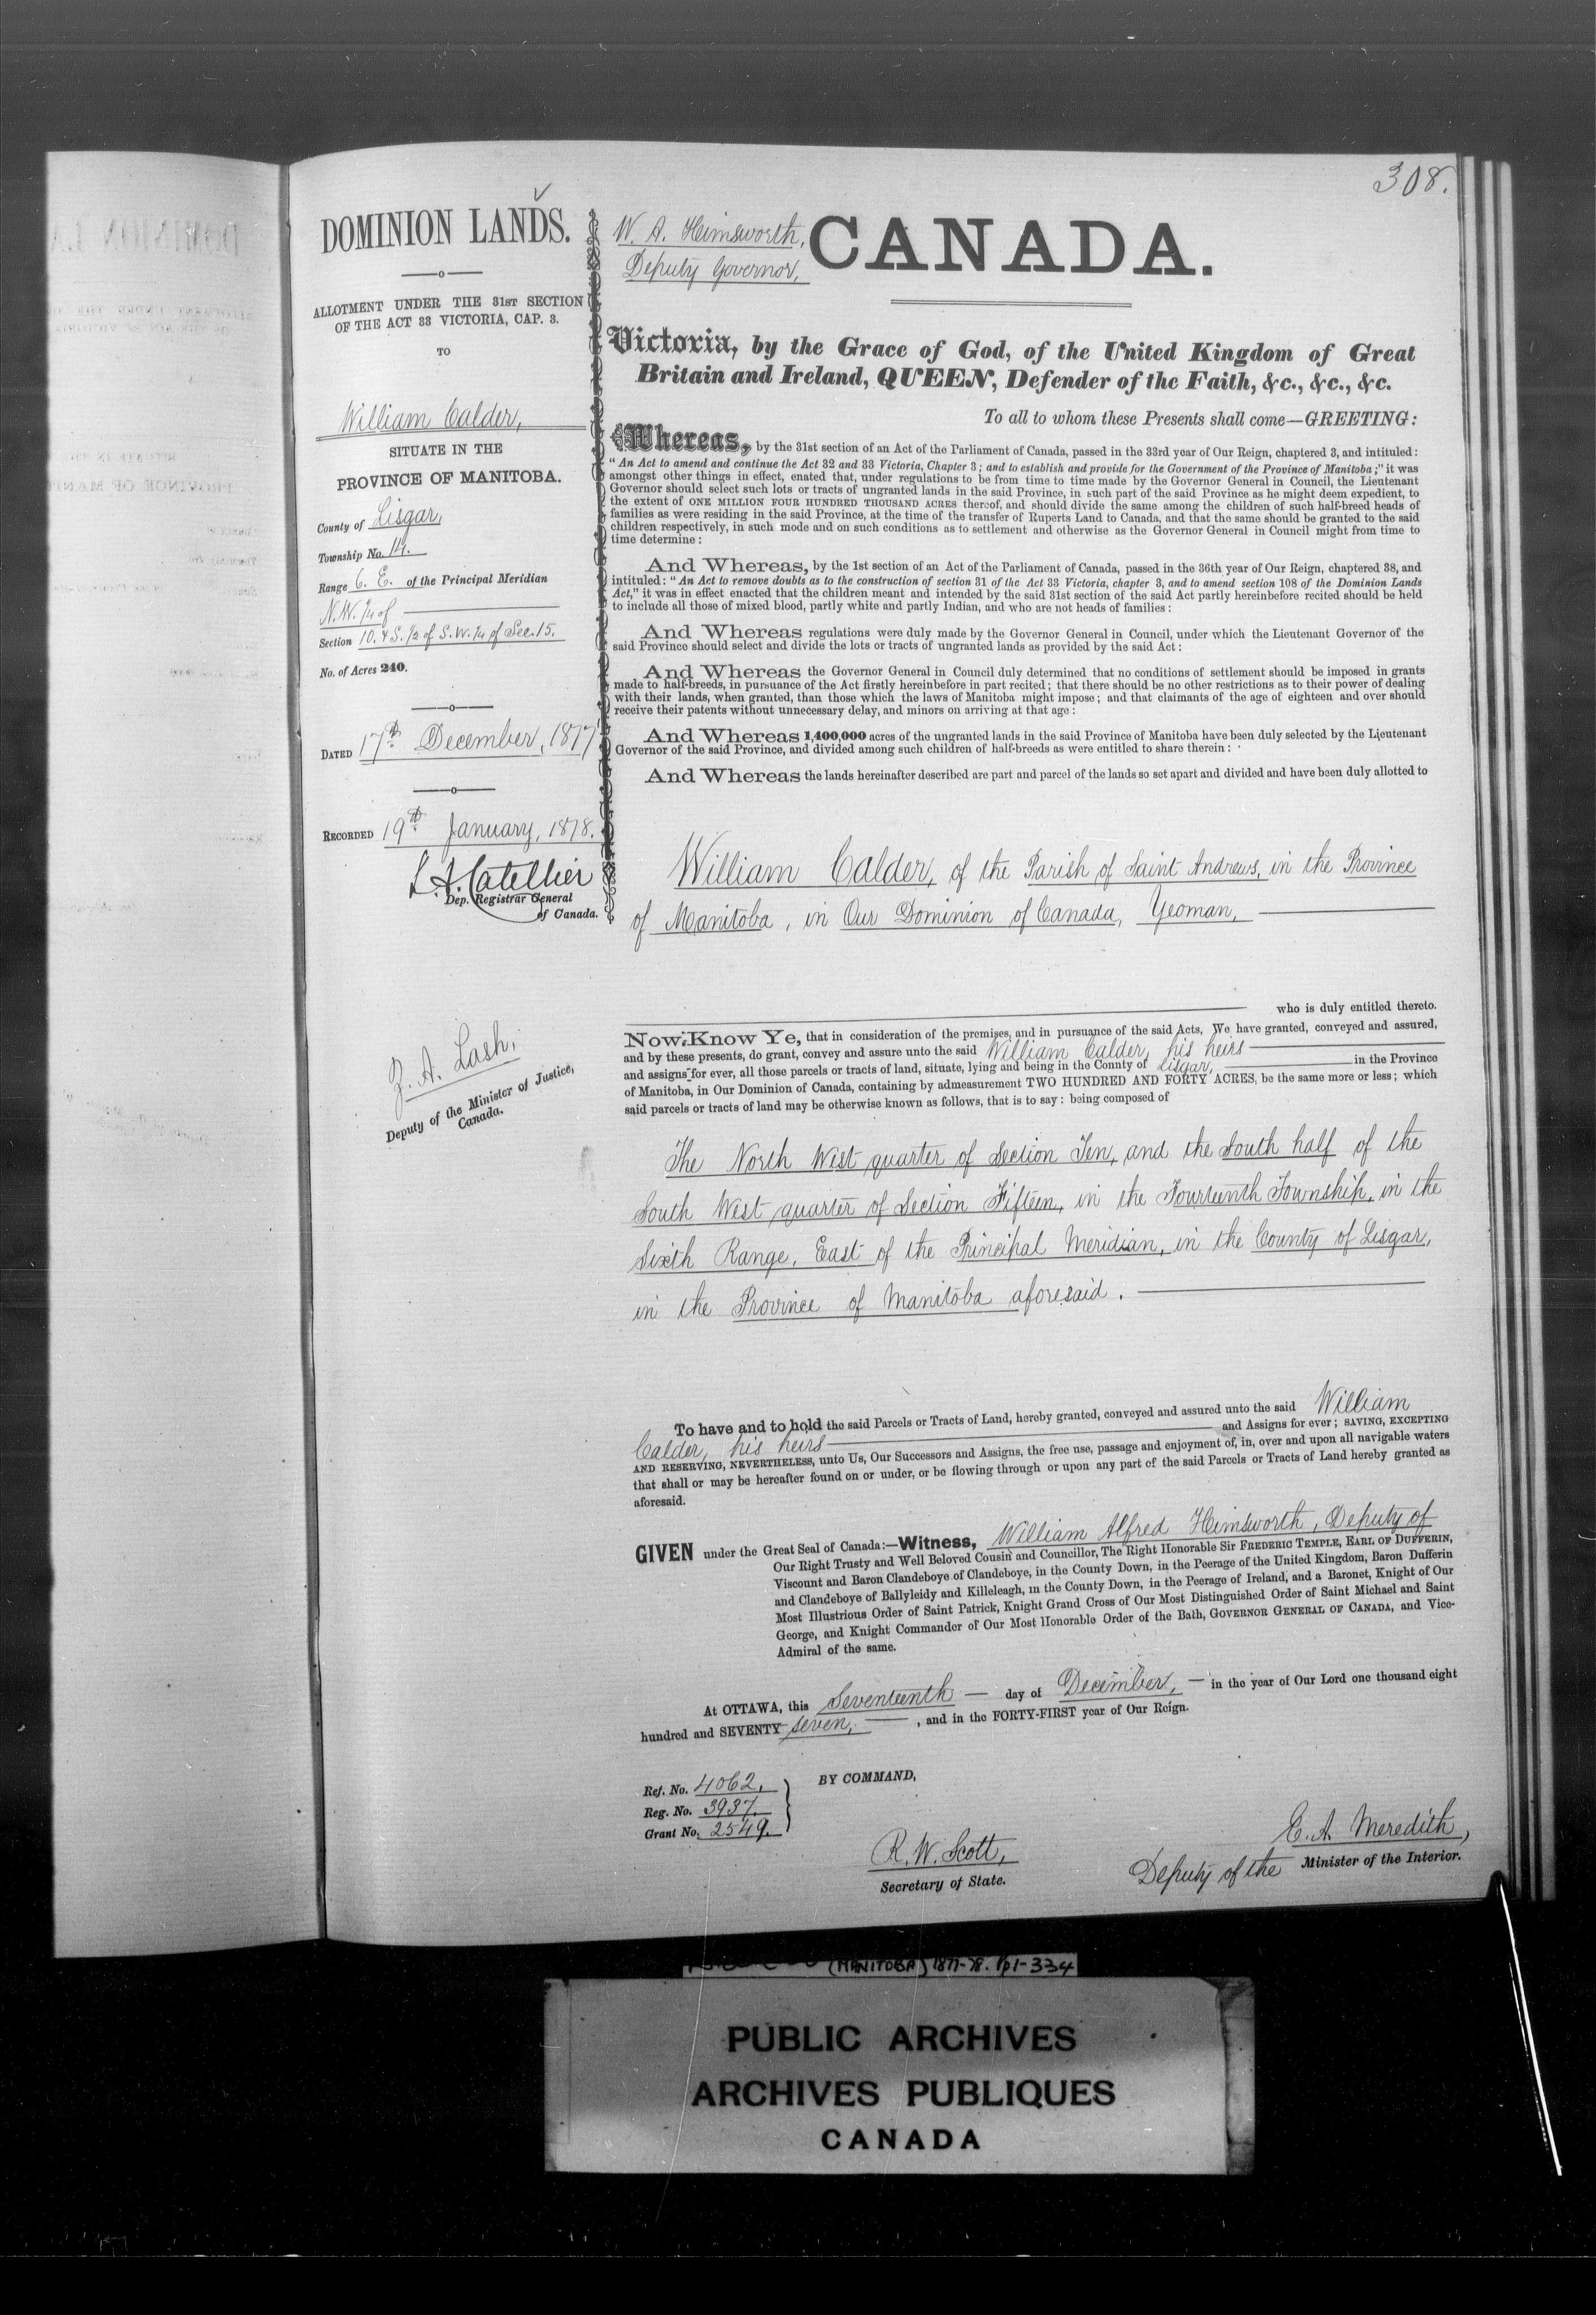 308.
DOMINION LANDS.
ALLOTMENT UNDER THE 31ST SECTION
OF THE ACT 33 VICTORIA, CAP. 3.
TO
William Calder,
SITUATE IN THE
PROVINCE OF MANITOBA.
County of Lisgar,
Township No. 14.
Range 6. E. of the Principal Meridian
N.W. 1/4 of
Section 10. & S. 1/2 of S.W. 1/4 of Sec. 15.
No. of Acres 240.
DATED 17th December, 1877
RECORDED 19th January, 1878.
L.A. Catellier
Dep. Registrar General
of Canada.
Z. A. Lash,
Deputy of the Minister of Justice,
Canada.
W. A. Himsworth,
Deputy Governor,
CANADA.
Victoria, by the Grace of God, of the United Kingdom of Great
Britain and Ireland, QUEEN, Defender of the Faith, &c., &c., &c.
To all to whom these Presents shall come—GREETING:
Whereas, by the 31st section of an Act of the Parliament of Canada, passed in the 33rd year of Our Reign, chaptered 3, and intituled:
"An Act to amend and continue the Act 32 and 33 Victoria, Chapter 3; and to establish and provide for the Government of the Province of Manitoba;" it was
amongst other things in effect, enated that, under regulations to be from time to time made by the Governor General in Council, the Lieutenant
Governor should select such lots or tracts of ungranted lands in the said Province, in such part of the said Province as he might deem expedient, to
the extent of ONE MILLION FOUR HUNDRED THOUSAND ACRES thereof, and should divide the same among the children of such half-breed heads of
families as were residing in the said Province, at the time of the transfer of Ruperts Land to Canada, and that the same should be granted to the said
children respectively, in such mode and on such conditions as to settlement and otherwise as the Governor General in Council might from time to
time determine:
And Whereas, by the 1st section of an Act of the Parliament of Canada, passed in the 36th year of Our Reign, chaptered 38, and
intituled: "An Act to remove doubts as to the construction of section 31 of the Act 33 Victoria, chapter 3, and to amend section 108 of the Dominion Lands
Act," it was in effect enacted that the children meant and intended by the said 31st section of the said Act partly hereinbefore recited should be held
to include all those of mixed blood, partly white and partly Indian, and who are not heads of families:
And Whereas regulations were duly made by the Governor General in Council, under which the Lieutenant Governor of the
said Province should select and divide the lots or tracts of ungranted lands as provided by the said Act:
And Whereas the Governor General in Council duly determined that no conditions of settlement should be imposed in grants
made to half-breeds, in pursuance of the Act firstly hereinbefore in part recited; that there should be no other restrictions as to their power of dealing
with their lands, when granted, than those which the laws of Manitoba might impose; and that claimants of the age of eighteen and over should
receive their patents without unnecessary delay, and minors on arriving at that age:
And Whereas 1,400,000 acres of the ungranted lands in the said Province of Manitoba have been duly selected by the Lieutenant
Governor of the said Province, and divided among such children of half-breeds as were entitled to share therein:
And Whereas the lands hereinafter described are part and parcel of the lands so set apart and divided and have been duly allotted to
William Calder, of the Parish of Saint Andrews, in the Province
of Manitoba, in Our Dominion of Canada, Yeoman,
who is duly entitled thereto.
Now Know Ye, that in consideration of the premises, and in pursuance of the said Acts, We have granted, conveyed and assured,
and by these presents, do grant, convey and assure unto the said William Calder, his heirs
and assigns for ever, all those parcels or tracts of land, situate, lying and being in the County of Lisgar, in the Province
of Manitoba, in Our Dominion of Canada, containing by admeasurement TWO HUNDRED AND FORTY ACRES, be the same more or less; which
said parcels or tracts of land may be otherwise known as follows, that is to say: being composed of
The North West quarter of Section Ten, and the South half of the
South West quarter of Section Fifteen, in the Fourteenth Township, in the
Sixth Range, East of the Principal Meridian, in the County of Lisgar,
in the Province of Manitoba aforesaid.
To have and to hold the said Parcels or Tracts of Land, hereby granted, conveyed and assured unto the said William
Calder, his heirs and Assigns for ever; SAVING, EXCEPTING
AND RESERVING, NEVERTHELESS, unto Us, Our Successors and Assigns, the free use, passage and enjoyment of, in, over and upon all navigable waters
that shall or may be hereafter found on or under, or be flowing through or upon any part of the said Parcels or Tracts of Land hereby granted as
aforesaid.
GIVEN under the Great Seal of Canada:—Witness, William Alfred Himsworth, Deputy of
Our Right Trusty and Well Beloved Cousin and Councillor, The Right Honorable Sir FREDERIC TEMPLE, EARL OF DUFFERIN,
Viscount and Baron Clandeboye of Clandeboye, in the County Down, in the Peerage of the United Kingdom, Baron Dufferin
and Clandeboye of Ballyleidy and Killeleagh, in the County Down, in the Peerage of Ireland, and a Baronet, Knight of Our
Most Illustrious Order of Saint Patrick, Knight Grand Cross of Our Most Distinguished Order of Saint Michael and Saint
George, and Knight Commander of Our Most Honorable Order of the Bath, GOVERNOR GENERAL OF CANADA, and Vice-
Admiral of the same.
At OTTAWA, this Seventeenth day of December, in the year of Our Lord one thousand eight
hundred and SEVENTY seven, , and in the FORTY-FIRST year of Our Reign.
Ref. No. 4062.
Reg. No. 3937.
Grant No. 2549.
BY COMMAND,
R. W. Scott,
Secretary of State.
E. A. Meredith,
Deputy of the Minister of the Interior.
(MANITOBA) 1877-78. pp1-334
PUBLIC ARCHIVES
ARCHIVES PUBLIQUES
CANADA